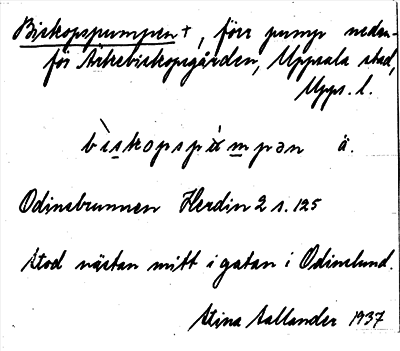 Biskopspumpen +, förr pump neden-
för Ärkebiskopsgården, Uppsala stad,
Upps. l.
bìskopspùmpən ä.
Odinsbrunnen Herdin 2 s. 125
Stod nästan mitt i gatan i Odinslund.
Stina Sallander 1937